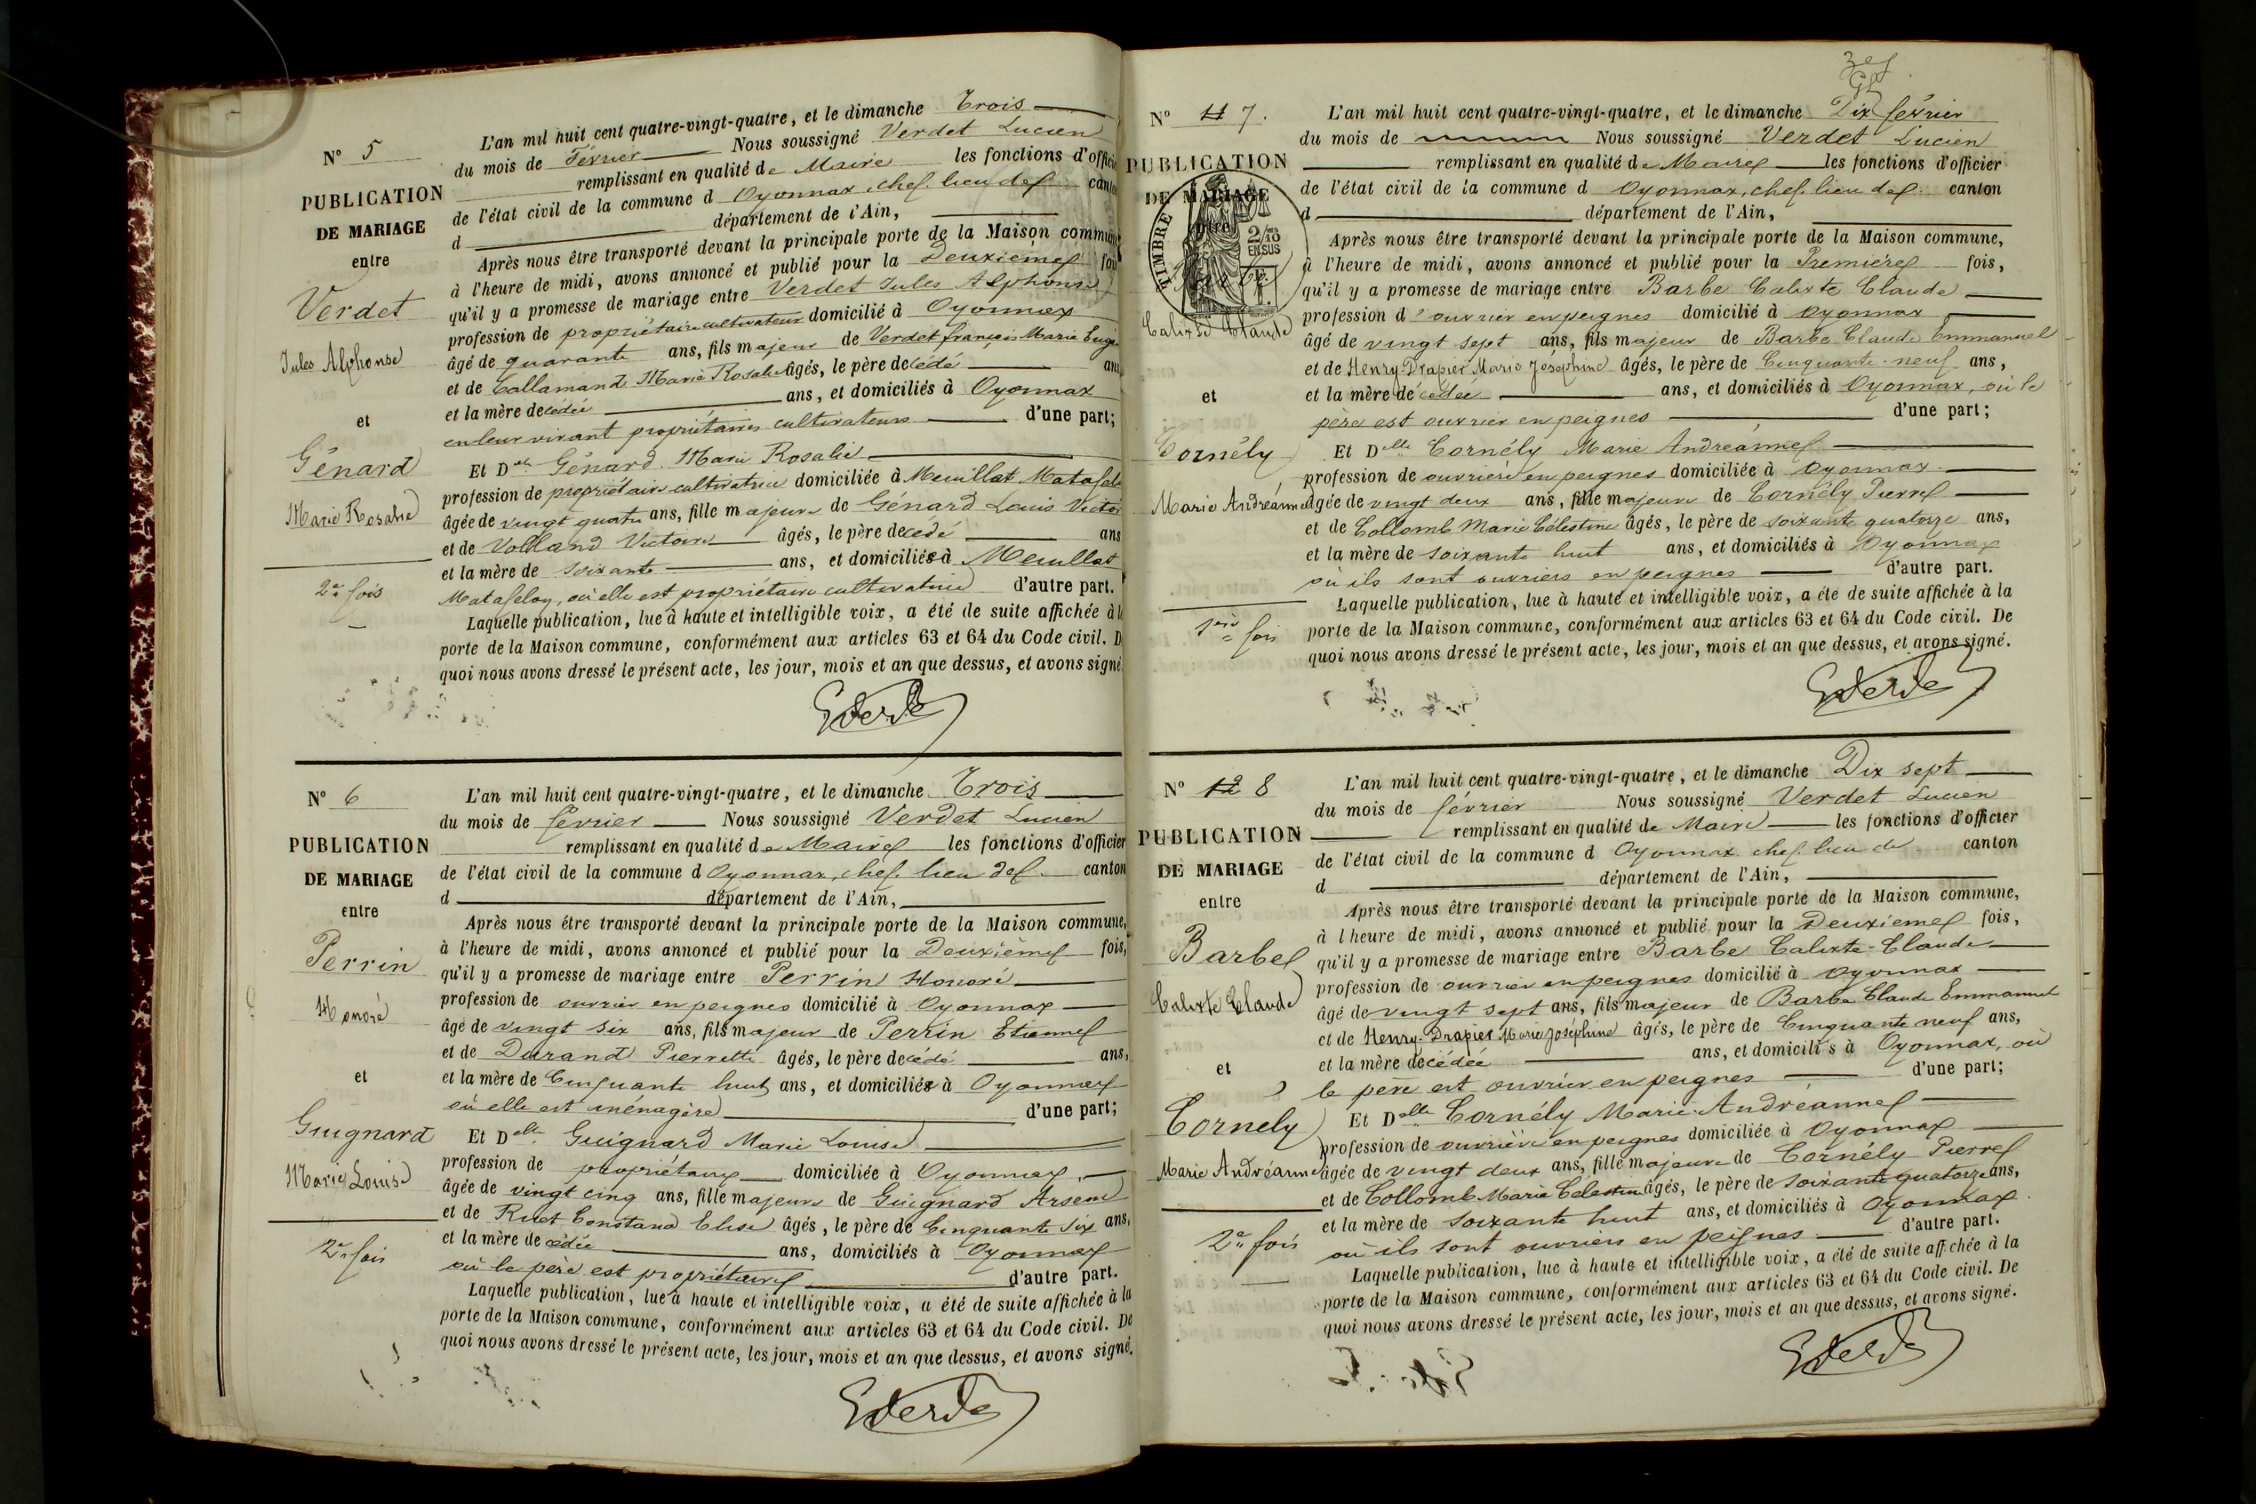 N° 5
PUBLICATION
DE MARIAGE
entre
Verdet
Jules Alphonse
et
Génard
Marie Rosalie
2e fois
L'an mil huit cent quatre-vingt-quatre, et le dimanche Trois
du mois de Février Nous soussigné Verdet Lucien
remplissant en qualité de Maire les fonctions d'officier
de l'état civil de la commune d Oyonnax, chef-lieu de canton
d département de l'Ain,
Après nous être transporté devant la principale porte de la Maison commune
à l'heure de midi, avons annoncé et publié pour la Deuxième fois
qu'il y a promesse de mariage entre Verdet Jules Alphonse
profession de propriétaire cultivateur domicilié à Oyonnax
âgé de quarante ans, fils majeur de Verdet françois Marie Eugè
et de Callamand Marie Rosalie âgés, le père décédé ans
et la mère décédée ans, et domiciliés à Oyonnax
en leur vivant propriétaires cultivateurs d'une part;
Et Delle Génard Marie Rosalie
profession de propriétaire cultivatrice domiciliée à Meuillat Matafelon
âgée de vingt quatre ans, fille majeure de Génard Louis Victor
et de Volland Victoire âgés, le père décédé ans
et la mère de soixante ans, et domiciliés à Meuillat
Matafelon, où elle est propriétaire cultivatrice d'autre part.
Laquelle publication, lue à haute et intelligible voix, a été de suite affichée à la
porte de la Maison commune, conformément aux articles 63 et 64 du Code civil. D
quoi nous avons dressé le présent acte, les jour, mois et an que dessus, et avons signé
N° 6
PUBLICATION
DE MARIAGE
entre
Perrin
Honoré
et
Guignard
Marie Louise
2e fois
L'an mil huit cent quatre-vingt-quatre, et le dimanche Trois
du mois de février Nous soussigné Verdet Lucien
remplissant en qualité de Maire les fonctions d'officier
de l'état civil de la commune d Oyonnax, chef-lieu de canton
d département de l'Ain,
Après nous être transporté devant la principale porte de la Maison commune,
à l'heure de midi, avons annoncé et publié pour la Deuxième fois,
qu'il y a promesse de mariage entre Perrin Honoré
profession de ouvrier en peignes domicilié à Oyonnax
âgé de vingt six ans, fils majeur de Perrin Etienne
et de Durand Pierrette âgés, le père décédé ans,
et la mère de Cinquante huit ans, et domiciliés à Oyonnax
où elle est ménagère d'une part;
Et Delle Guignard Marie Louise
profession de propriétaire domiciliée à Oyonnax
âgée de vingt cinq ans, fille majeure de Guignard Arsène
et de Ruet Constand Elise âgés, le père de Cinquante six ans,
et la mère décédée ans, domiciliés à Oyonnax
où le père est propriétaire d'autre part.
Laquelle publication, lue à haute et intelligible voix, a été de suite affichée à la
porte de la Maison commune, conformément aux articles 63 et 64 du Code civil. De
quoi nous avons dressé le présent acte, les jour, mois et an que dessus, et avons signé.
N° 11 7.
PUBLICATION
DE MARIAGE
entre
TIMBRE
2/10 EN SUS
Calixte Claude
et
Cornély
Marie Andréanne
1ère fois
L'an mil huit cent quatre-vingt-quatre, et le dimanche Dix février
du mois de Nous soussigné Verdet Lucien
remplissant en qualité de Maire les fonctions d'officier
de l'état civil de la commune d Oyonnax, chef-lieu de canton
d département de l'Ain,
Après nous être transporté devant la principale porte de la Maison commune,
à l'heure de midi, avons annoncé et publié pour la Première fois,
qu'il y a promesse de mariage entre Barbe Calixte Claude
profession d'ouvrier en peignes domicilié à Oyonnax
âgé de vingt sept ans, fils majeur de Barbe Claude Emmanuel
et de Henry-Drapier Marie Joséphine âgés, le père de Cinquante-neuf ans,
et la mère décédée ans, et domiciliés à Oyonnax, où le
père est ouvrier en peignes d'une part;
Et Delle Cornély Marie Andréanne
profession de ouvrière en peignes domiciliée à Oyonnax
âgée de vingt deux ans, fille majeure de Cornély Pierre
et de Collomb Marie Célestine âgés, le père de soixante quatorze ans,
et la mère de soixante huit ans, et domiciliés à Oyonnax
où ils sont ouvriers en peignes d'autre part.
Laquelle publication, lue à haute et intelligible voix, a été de suite affichée à la
porte de la Maison commune, conformément aux articles 63 et 64 du Code civil. De
quoi nous avons dressé le présent acte, les jour, mois et an que dessus, et avons signé.
N° 12 8
PUBLICATION
DE MARIAGE
entre
Barbe
Calixte Claude
et
Cornely
Marie Andréanne
2e fois
L'an mil huit cent quatre-vingt-quatre, et le dimanche Dix sept
du mois de février Nous soussigné Verdet Lucien
remplissant en qualité de Maire les fonctions d'officier
de l'état civil de la commune d Oyonnax chef-lieu de canton
d département de l'Ain,
Après nous être transporté devant la principale porte de la Maison commune,
à l'heure de midi, avons annoncé et publié pour la Deuxième fois,
qu'il y a promesse de mariage entre Barbe Calixte-Claude
profession de ouvrier en peignes domicilié à Oyonnax
âgé de vingt sept ans, fils majeur de Barbe Claude Emmanuel
et de Henry-Drapier Marie Joséphine âgés, le père de Cinquante neuf ans,
et la mère décédée ans, et domiciliés à Oyonnax, où
le père est ouvrier en peignes d'une part;
Et Delle Cornély Marie Andréanne
profession de ouvrière en peignes domiciliée à Oyonnax
âgée de vingt deux ans, fille majeure de Cornély Pierre
et de Collomb Marie Célestine âgés, le père de soixante quatorze ans,
et la mère de soixante huit ans, et domiciliés à Oyonnax
où ils sont ouvriers en peignes d'autre part.
Laquelle publication, lue à haute et intelligible voix, a été de suite affichée à la
porte de la Maison commune, conformément aux articles 63 et 64 du Code civil. De
quoi nous avons dressé le présent acte, les jour, mois et an que dessus, et avons signé.